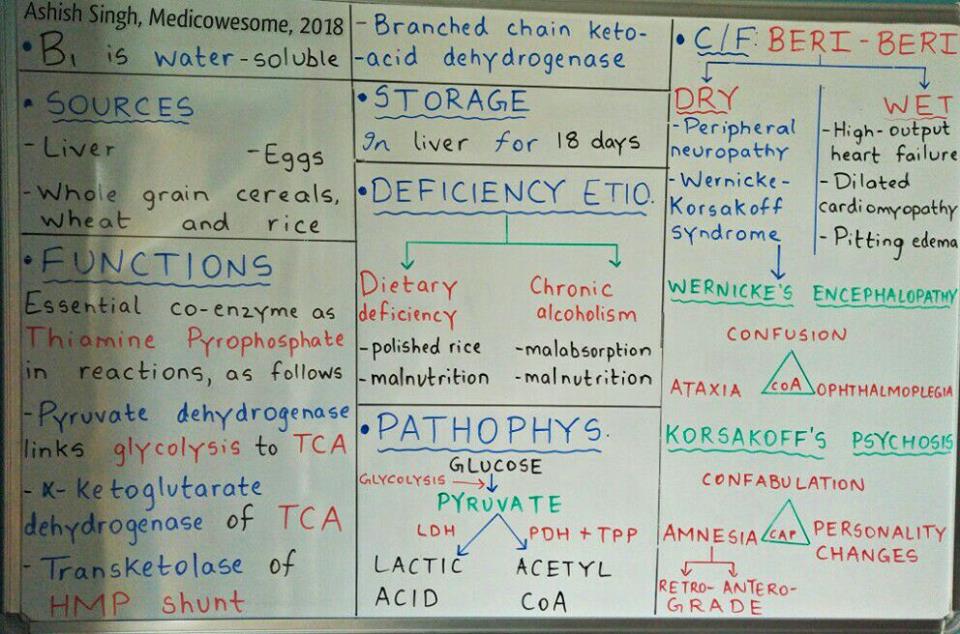 Ashish Singh, Medicowesome, 2018
• B₁ is water-soluble
• SOURCES
- Liver - Eggs
- Whole grain cereals,
wheat and rice
• FUNCTIONS
Essential co-enzyme as
Thiamine Pyrophosphate
in reactions, as follows
- Pyruvate dehydrogenase
links glycolysis to TCA
- α- Ketoglutarate
dehydrogenase of TCA
- Transketolase of
HMP shunt
- Branched chain keto-
-acid dehydrogenase
• STORAGE
In liver for 18 days
• DEFICIENCY ETIO.
Dietary
deficiency
- polished rice
- malnutrition
Chronic
alcoholism
- malabsorption
- malnutrition
• PATHOPHYS.
GLUCOSE
GLYCOLYSIS →
PYRUVATE
LDH PDH + TPP
LACTIC
ACID
ACETYL
CoA
• C/F: BERI - BERI
DRY
- Peripheral
neuropathy
- Wernicke-
Korsakoff
syndrome
WET
- High-output
heart failure
- Dilated
cardiomyopathy
- Pitting edema
WERNICKE'S ENCEPHALOPATHY
CONFUSION
ATAXIA COA OPHTHALMOPLEGIA
KORSAKOFF'S PSYCHOSIS
CONFABULATION
AMNESIA CAP PERSONALITY
CHANGES
RETRO- ANTERO-
GRADE